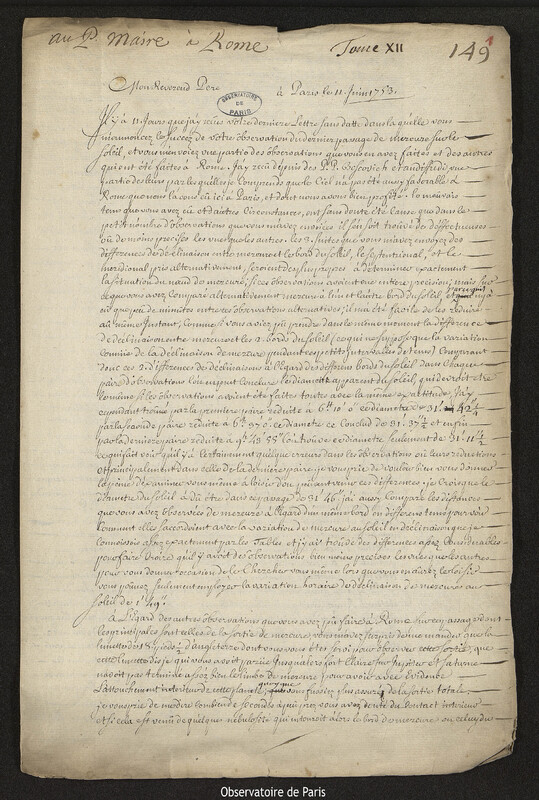 au P. Maire à Rome
Tome XII
149
Mon Reverend Pere
à Paris le 11 Juin 1753.
OBSERVATOIRE
DE
PARIS
Il y a 11 Jours que j'ay reçu votre derniere Lettre sans datte dans laquelle vous
m'annoncez le succez de votre observation du dernier passage de mercure sur le
Soleil, et vous m'envoiez une partie des observations que vous en avez faites et des autres
qui ont été faites à Rome. J'ay reçu depuis des P.P. Boscovich et une
partie des leurs par lesquelles je comprends que le Ciel n'a pas été aussi favorable à
Rome que nous l'avons eu ici à Paris, et dont nous avons bien profité. le mauvais
tems que vous avez eu et d'autres Circonstances, ont sans doute été Cause que dans le
petit nombre d'observations que vous m'avez envoiées il s'en soit trouvé de deffectueuses
ou de moins precises les unes que les autres. les 3 suites que vous m'avez envoyez des
differences de declinaison entre mercure et le bord du soleil, le septentrional, et le
meridional pris alternativement, seroient des plus propres à determiner exactement
la situation du nœud de mercure, si ces observations avoient une entiere precision; mais sur
ce que vous avez Comparé alternativement mercure à l'un et l'autre bord du soleil,
ou que peu de minutes entre ces observations alternatives, il m'a été facile de les reduire
au même Instant, Comme si vous aviez pu prendre dans le même moment la difference
de declinaison entre mercure et les 2 bords du soleil (ce qui ne suppose que la variation
Connue de la declinaison de mercure pendant ces petits Intervalles de tems) Comparant
donc ces 2 differences de declinaisons à l'egard des differens bords du soleil dans chaque
paire d'observations l'on en peut conclure le diametre apparent du soleil, qui devroit etre
le même si les observations avoient été faites toutes avec la même exactitude. J'ay
cependant trouvé par la premiere paire reduite à 6h 10' 0" ce diametre de 31' 42" 1/2
par la seconde paire reduite à 6h 37' 0" ce diametre se Conclud de 31' 37" 1/2 et enfin
par la derniere paire reduite à 9h 43' 55" l'on trouve ce diametre seulement de 31' 11" 1/2
ce qui fait voir qu'il y a certainement quelque erreurs dans les observations ou leurs reductions
et principalement dans celle de la derniere paire. je vous prie de vouloir bien vous donner
la peine d'examiner vous même à loisir d'où peuvent venir ces differences. je crois que le
diametre du soleil a dû etre dans ce passage de 31' 46". j'ai aussi Comparé les distances
que vous avez observées de mercure à l'egard d'un même bord en differens tems pour voir
Comment elles s'accordoient avec la variation de mercure au soleil en declinaison que je
connoissois assez exactement par les Tables et j'y ai trouvé des differences assez Considerables
pour faire croire qu'il y avoit des observations bien moins precises les unes que les autres.
pour vous donner occasion de le Chercher vous même lors que vous en aurez le loisir
vous pouvez seulement employer la variation horaire de declinaison de mercure au
soleil de 1' 49".
à l'Egard des autres observations que vous avez pu faire à Rome sur ce passage dont
les principales sont celles de la sortie de mercure, vous m'avez surpris de me mander que la
lunette de 8 pieds 1/2 d'angleterre dont vous vous etes servi pour observer cette sortie, que
cette lunette dis je qui vous avoit parue Jusqu'alors fort claire sur Jupiter et saturne
n'a dit pas terminé assez bien le limbe de mercure pour avoir avec Evidence
l'attouchement Interieur de cette planete, quoyque vous fussiez plus assuré de la sortie totale.
je vous prie de me dire combien de secondes à peu prez vous avez douté du Contact Interieur
et si cela est venu de quelques nebulosité qui entouroit alors le bord de mercure ou celuy du